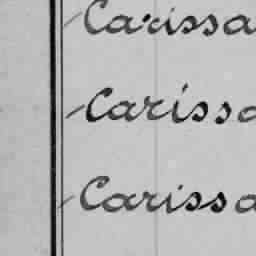 Carissa
Carissa
Carissa